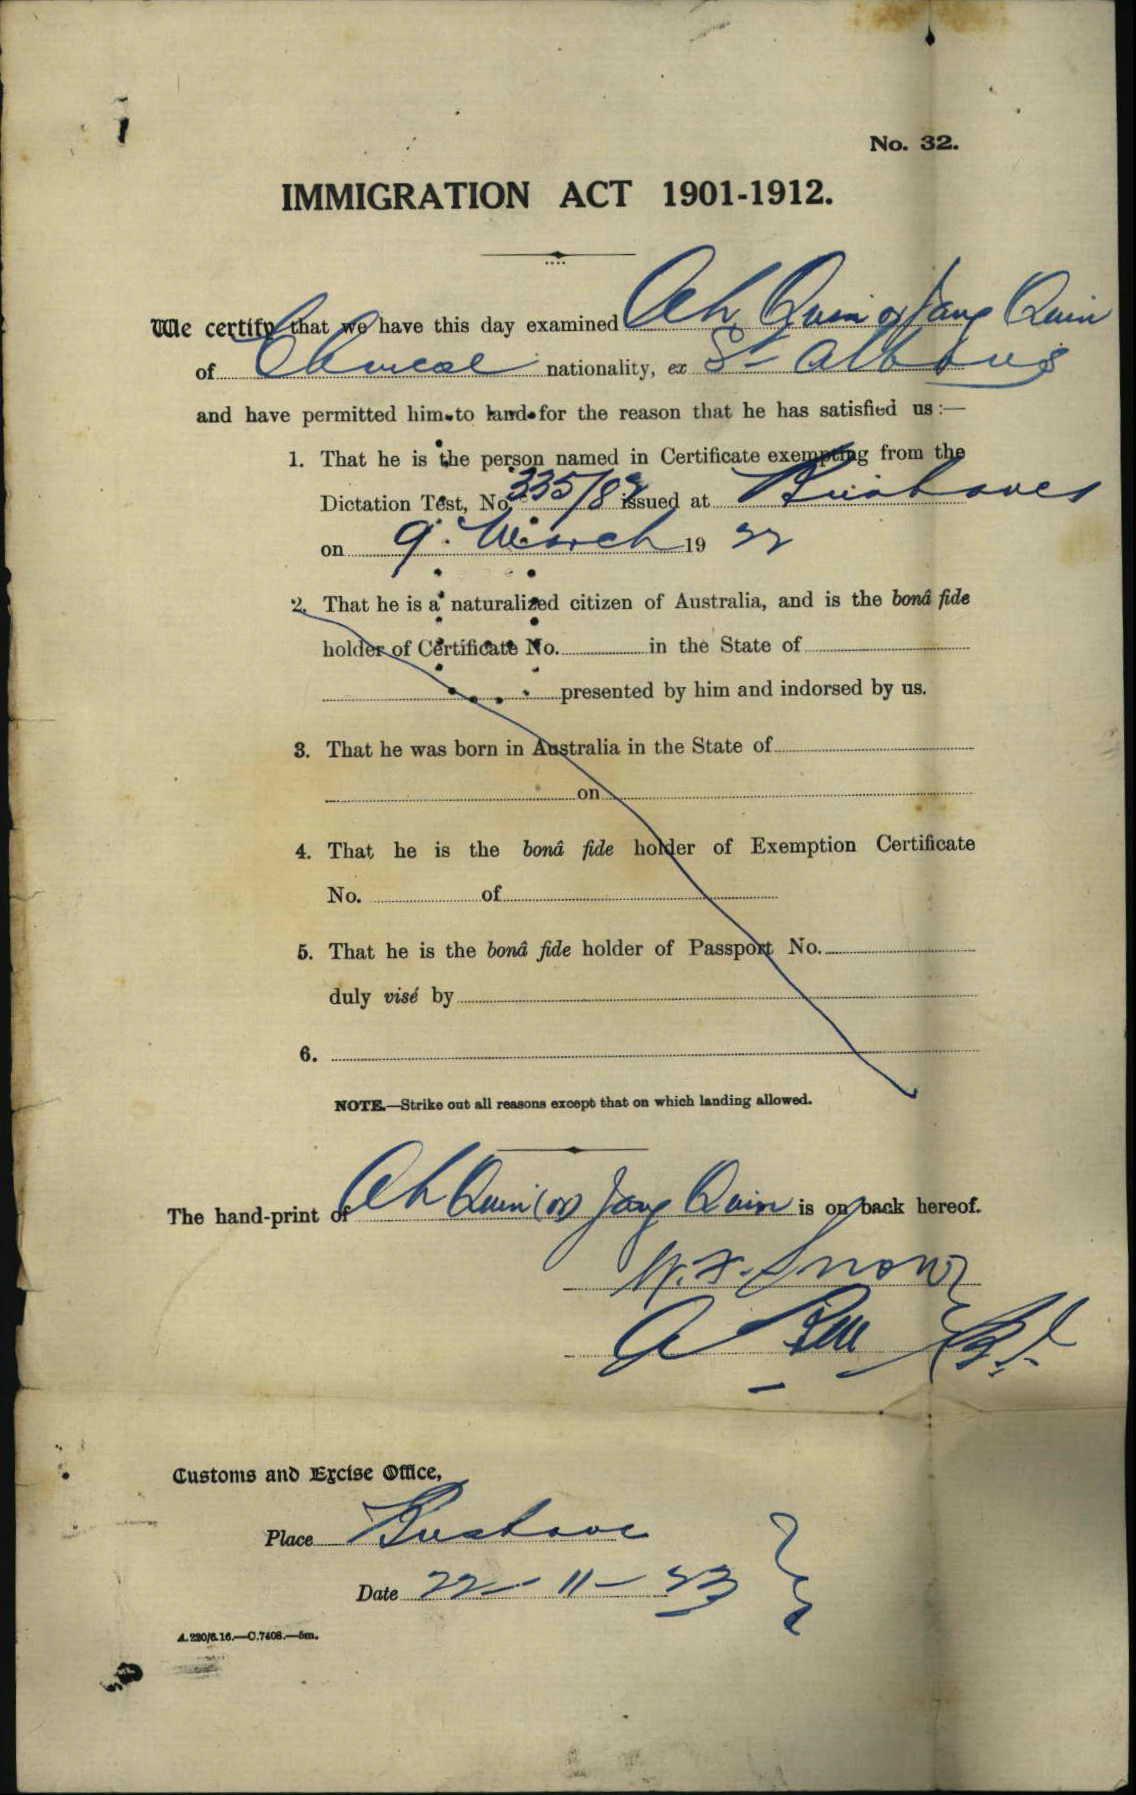 No. 32.
IMMIGRATION ACT 1901-1912.
We certify that we have this day examined Ah Quin or Jang Quin
of Chinese nationality, ex St Albans
and have permitted him to land for the reason that he has satisfied us:—
1. That he is the person named in Certificate exempting from the
Dictation Test, No. 335/82 issued at Brisbane
on 9. March 19 22
2. That he is a naturalized citizen of Australia, and is the bonâ fide
holder of Certificate No. in the State of
presented by him and indorsed by us.
3. That he was born in Australia in the State of
on
4. That he is the bonâ fide holder of Exemption Certificate
No. of
5. That he is the bonâ fide holder of Passport No.
duly visé by
6.
NOTE.—Strike out all reasons except that on which landing allowed.
The hand-print of Ah Quin (or) Jang Quin is on back hereof.
W. F. Snow
A Bell
Customs and Excise Office,
Place Brisbane
Date 22-11-23
A.220/6.16.—C.7408.—5m.